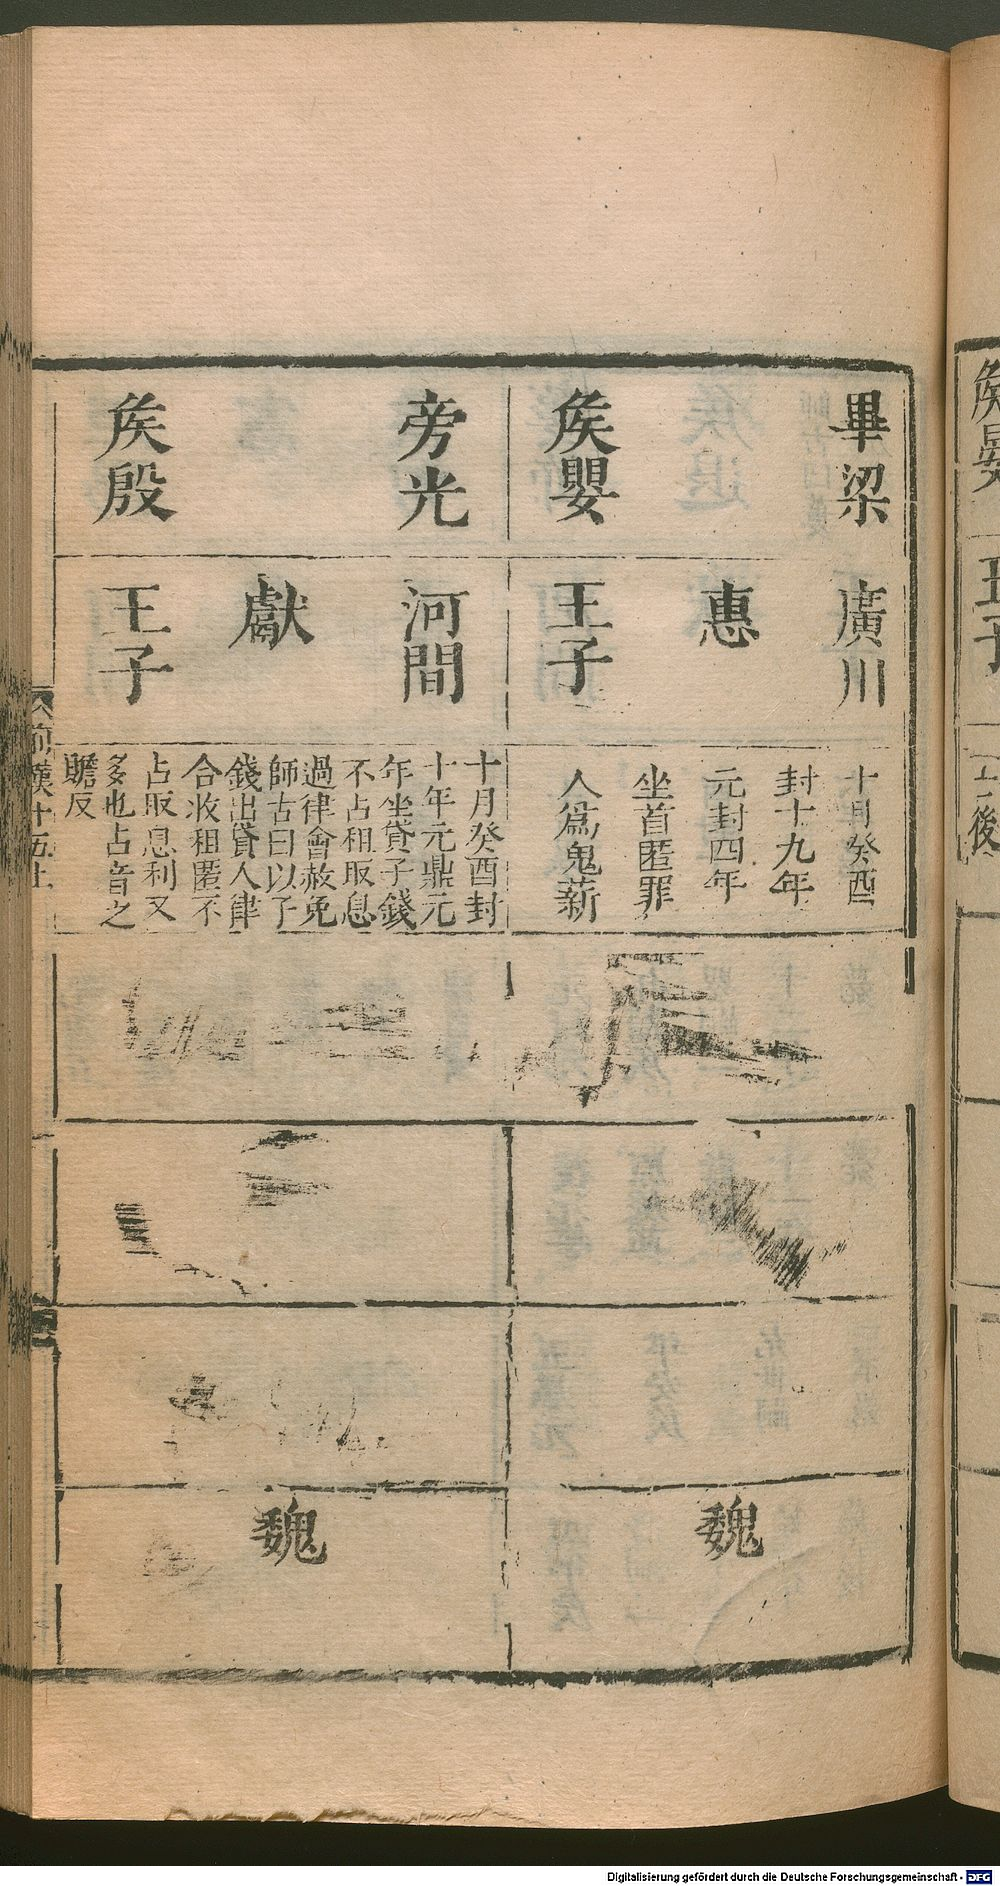 畢梁
矦嬰
廣川
惠
王子
十月癸酉
封十九年
元封四年
坐首匿罪
人爲鬼薪
魏
旁光
矦殷
河間
獻
王子
十月癸酉封
十年元鼎元
年坐貸子錢
不占租取息
過律會赦免
師古曰以子
錢出貸人律
合收租匿不
占取息利又
多也占音之
贍反
魏
前漢十五上
矦晏
王子
後
Digitalisierung gefördert durch die Deutsche Forschungsgemeinschaft - DFG